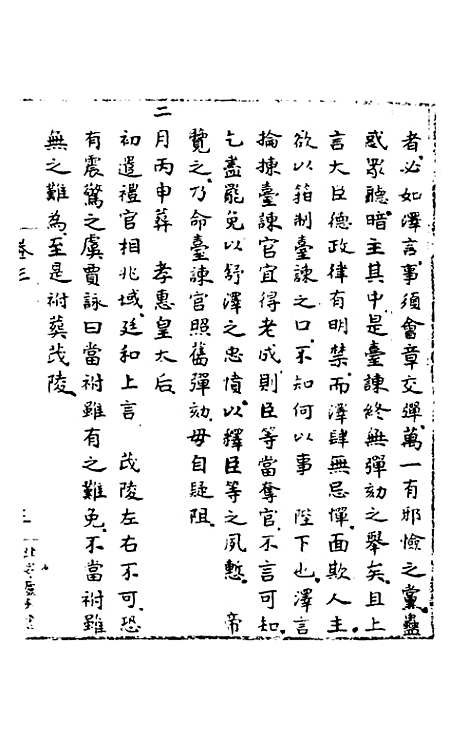 者必如澤言事須會章交彈萬一有邪憸之黨蠱
惑眾聽暗主其中是臺諫終無彈劾之舉矣且上
言大臣德政律有明禁而澤肆無忌憚面欺人主
欲以箝制臺諫之口不知何以事 陛下也澤言
掄揀臺諫官宜得老成則臣等當奪官不言可知
乞盡罷免以舒澤之忠憤以釋臣等之夙慙 帝
覽之乃命臺諫官照舊彈劾毋自疑阻
二月丙申葬 孝惠皇太后
初遣禮官相兆域廷和上言 茂陵左右不可恐
有震驚之虞賈詠曰當祔雖有之難免不當祔雖
無之難為至是祔葬茂陵
卷三
三